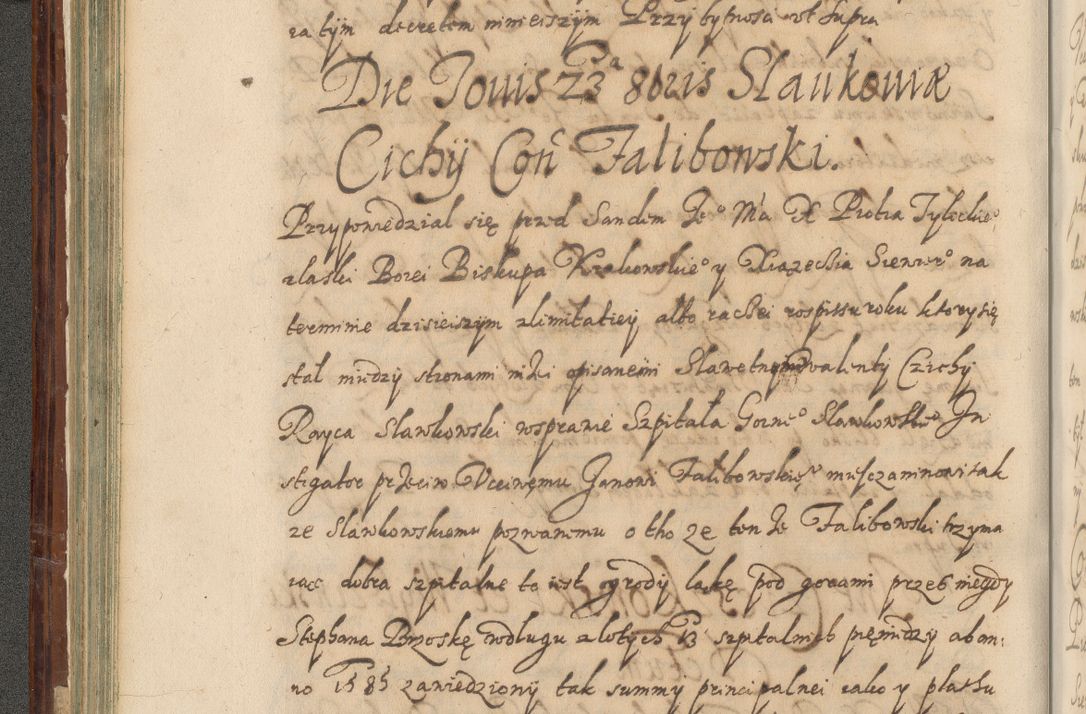 ra tym decretem ninieiszym Przy bytnosci vt supra
Die Jouis 23a 8bris Slaukouiæ
Cichÿ Coñ Falibowski.
Przypowiedzial się przed Sandem Jeo Ma X Piotra Tylickieo
z laski Bozei Biskupa Krakowskieo y Xiązecia Siewiero na
terminie dzisieiszym z limitatiey albo raczei rospissu roku ktory się
stal miedzy stronami nizei opisanemi Slawetny Walenty Czichy
Rayca Slawkowski wsprawie Szpitala Gorneo Slawkowskieo In
stigator przeciw Vcciwemu Janowi Falibowskiemu miesczaninowi tak
ze Slawkowskiemu pozwanemu o tho ze ten ze Falibowski trzyma
iąc dobra szpitalne to iest ogrody lakę pod gorami przes niegdy
Stephana Brzoskę wdlugu zlotych 13 szpitalnych pięniędzy ab an:
no 1585 zawiedziony tak summy principalnei iako y plathu